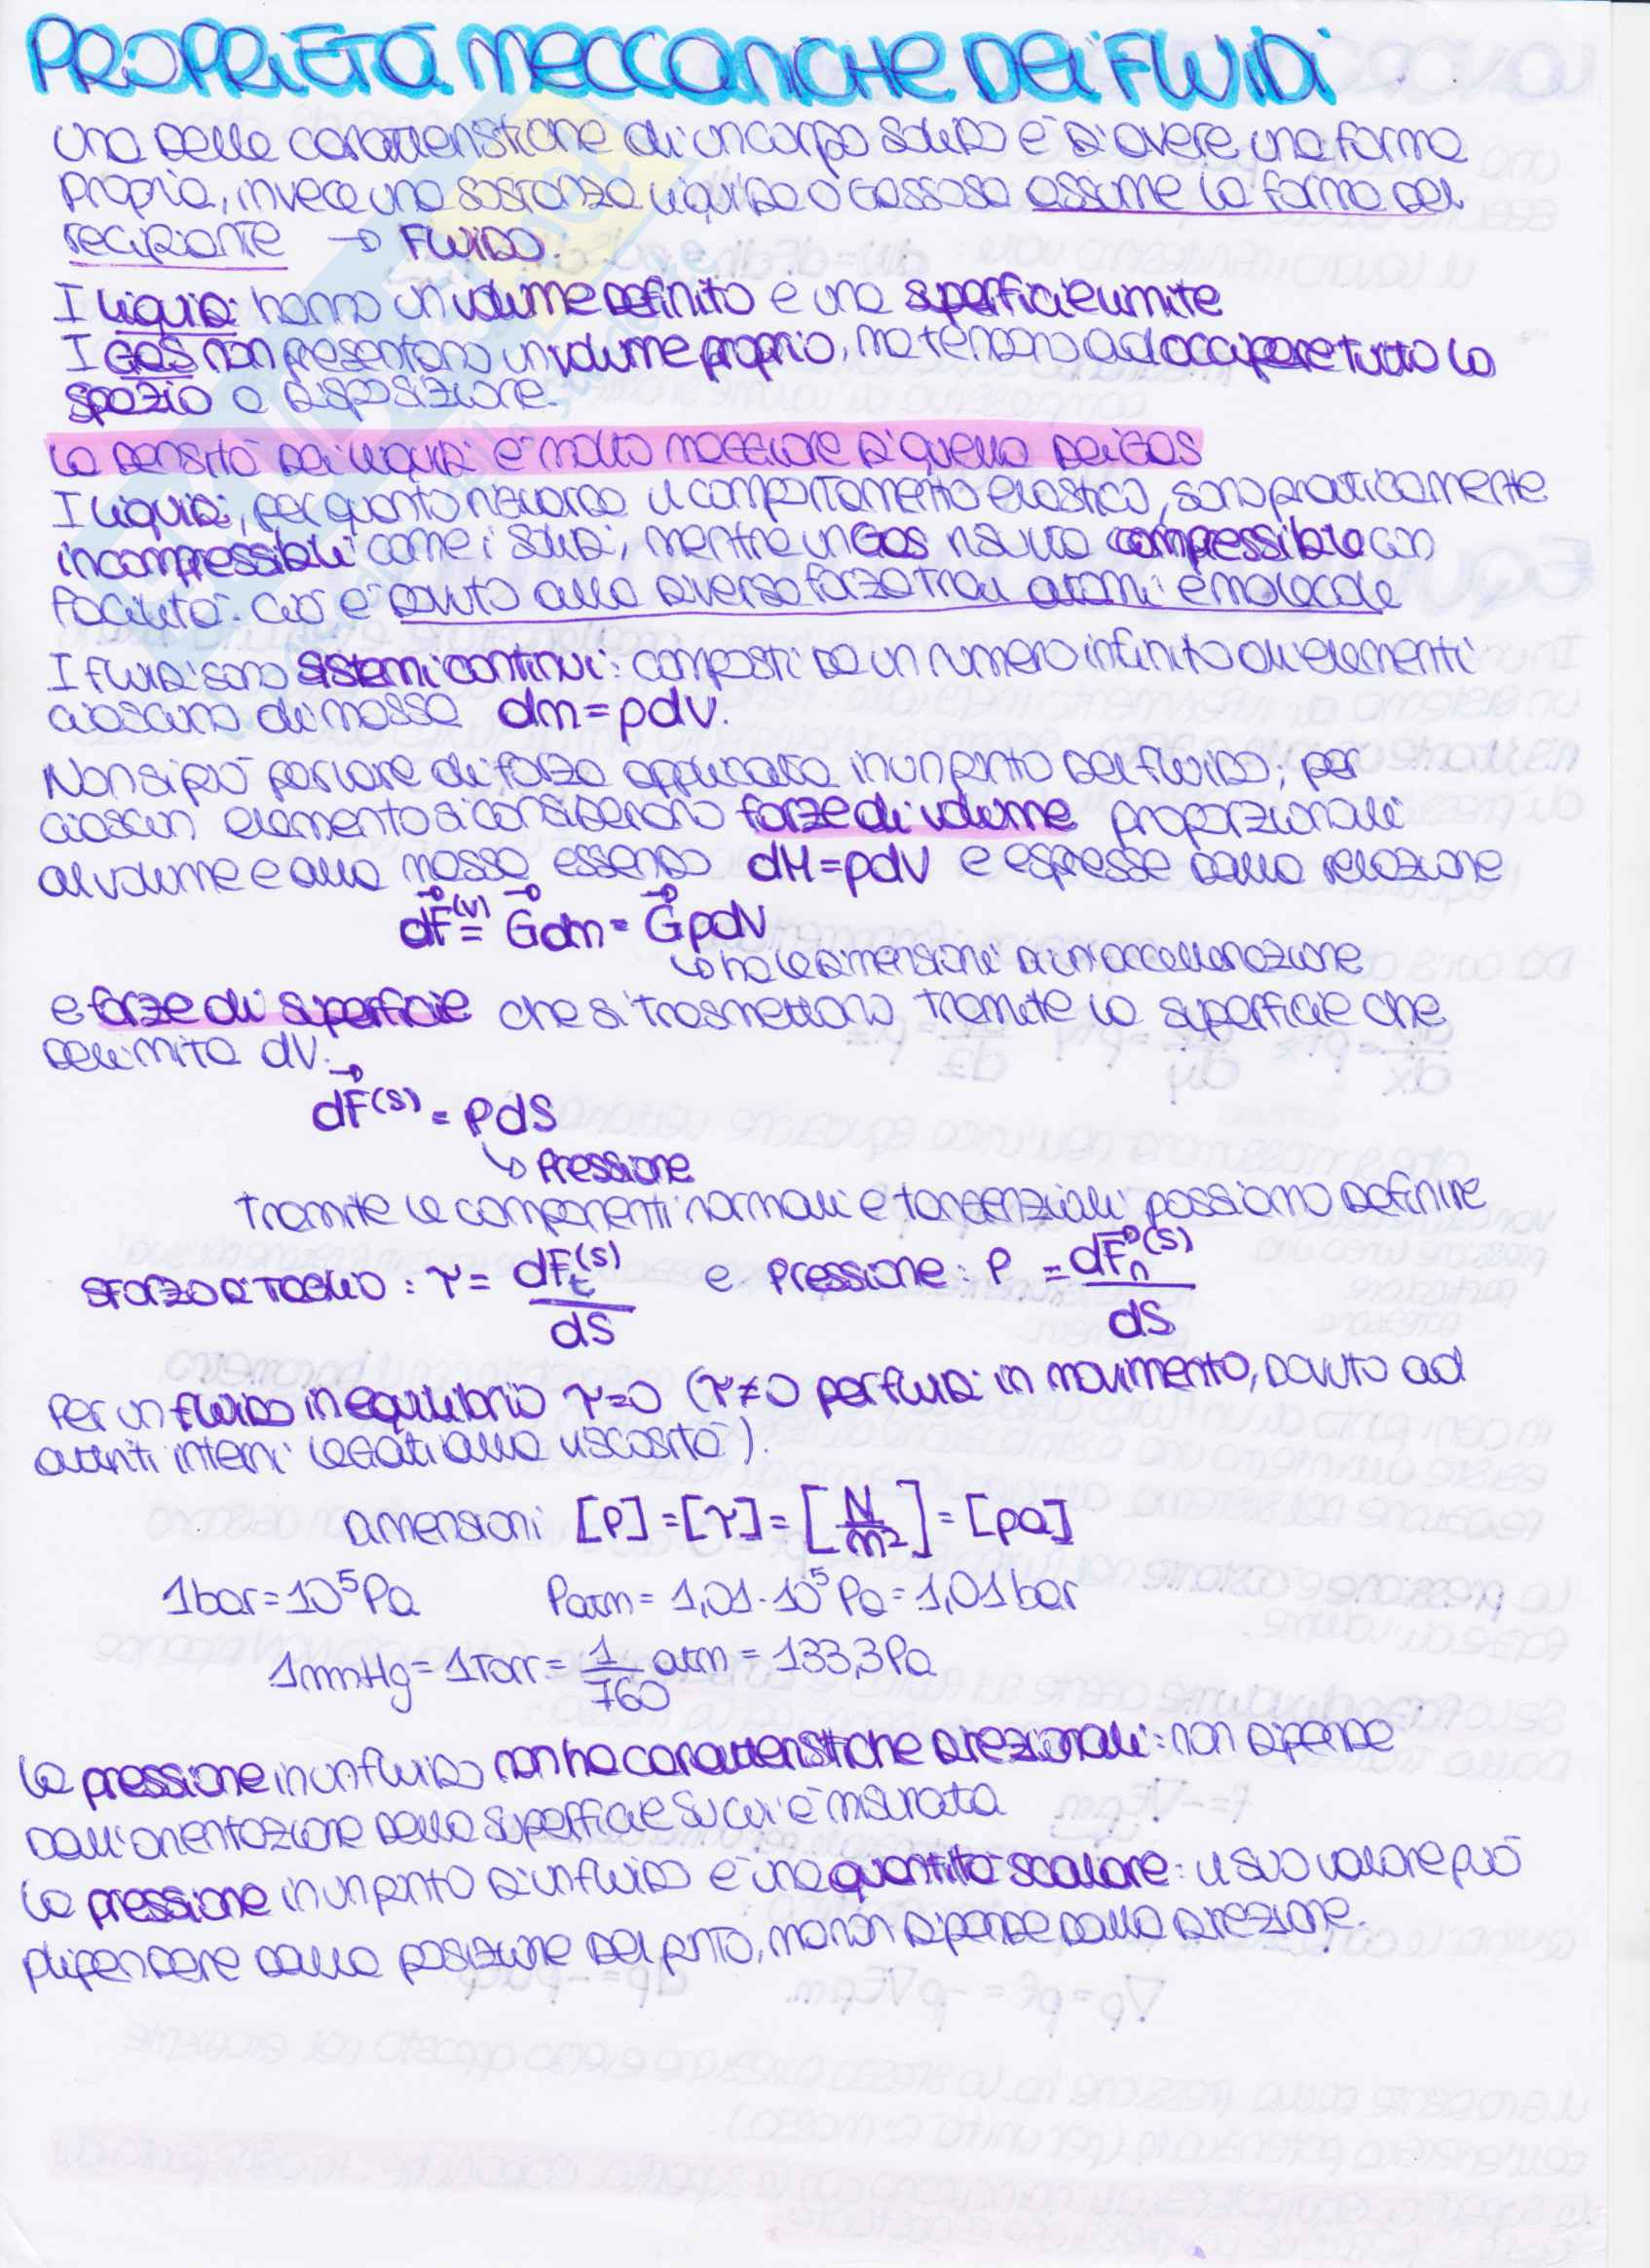 PROPRIETÀ MECCANICHE DEI FLUIDI
Una delle caratteristiche di un corpo solido è di avere una forma
propria, invece una sostanza liquida o gassosa assume la forma del
recipiente → FLUIDO.
I liquidi hanno un volume definito e una superficie limite
I GAS non presentano un volume proprio, ma tendono ad occupare tutto lo
spazio a disposizione.
La densità dei liquidi è molto maggiore di quella dei GAS
I liquidi, per quanto riguarda il comportamento elastico, sono praticamente
incompressibili come i solidi, mentre un Gas risulta compressibile con
facilità. Ciò è dovuto alla diversa forza tra atomi e molecole
I fluidi sono sistemi continui: composti da un numero infinito di elementi
ciascuno di massa dm=ρdV.
Non si può parlare di forza applicata in un punto del fluido; per
ciascun elemento si considerano forze di volume proporzionali
al volume e alla massa essendo dM=ρdV e espresse dalla relazione
dF⃗^(V) = G⃗dm = G⃗ρdV
↳ ha le dimensioni di un'accellerazione
e forze di superficie che si trasmettono tramite la superficie che
delimita dV.
dF⃗^(S) = PdS
↳ Pressione
Tramite le componenti normali e tangenziali possiamo definire
SFORZO DI TAGLIO : τ = dF_t^(S)/dS e Pressione: P = dF_n^(S)/dS
Per un fluido in equilibrio τ=0 (τ≠0 per fluidi in movimento, dovuto ad
attriti interni legati alla viscosità).
dimensioni [P]=[τ]=[N/m²]=[pa]
1bar=10⁵Pa Patm = 1,01·10⁵Pa=1,01bar
1mmHg=1Torr= 1/760 atm = 133,3Pa
La pressione in un fluido non ha caratteristiche direzionali: non dipende
dall'orientazione della superficie su cui è misurata
La pressione in un punto di un fluido è una quantità scalare: il suo valore può
dipendere dalla posizione del pnto, ma non dipende dalla direzione.